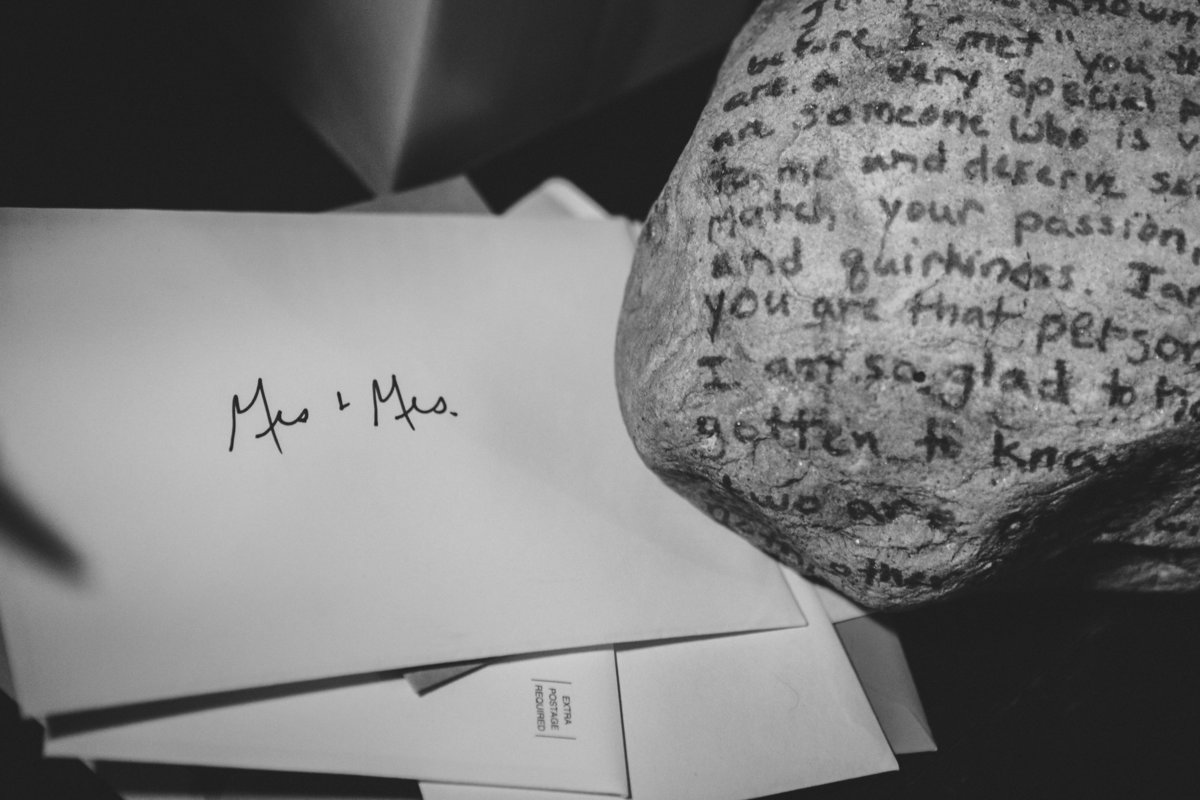 Mrs & Mrs.
known
before I met "you
are a very special
are someone who is
for me and deserve
match your passion,
and quirkiness. I am
you are that person
I am so glad to
gotten to know
two are
other
EXTRA
POSTAGE
REQUIRED